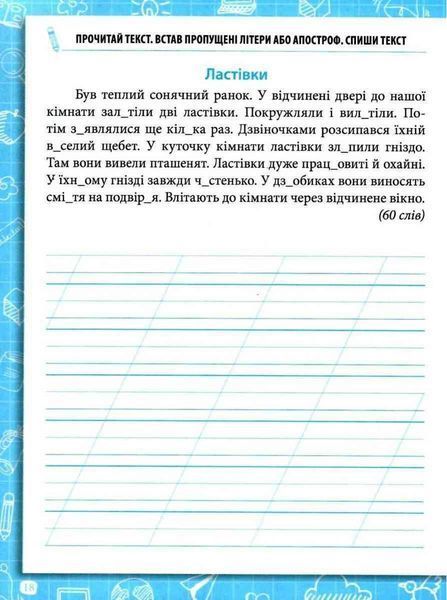 ПРОЧИТАЙ ТЕКСТ. ВСТАВ ПРОПУЩЕНІ ЛІТЕРИ АБО АПОСТРОФ. СПИШИ ТЕКСТ
Ластівки
Був теплий сонячний ранок. У відчинені двері до нашої
кімнати зал_тіли дві ластівки. Покружляли і вил_тіли. По-
тім з_являлися ще кіл_ка раз. Дзвіночками розсипався їхній
в_селий щебет. У куточку кімнати ластівки зл_пили гніздо.
Там вони вивели пташенят. Ластівки дуже прац_овиті й охайні.
У їхн_ому гнізді завжди ч_стенько. У дз_обиках вони виносять
смі_тя на подвір_я. Влітають до кімнати через відчинене вікно.
(60 слів)
18